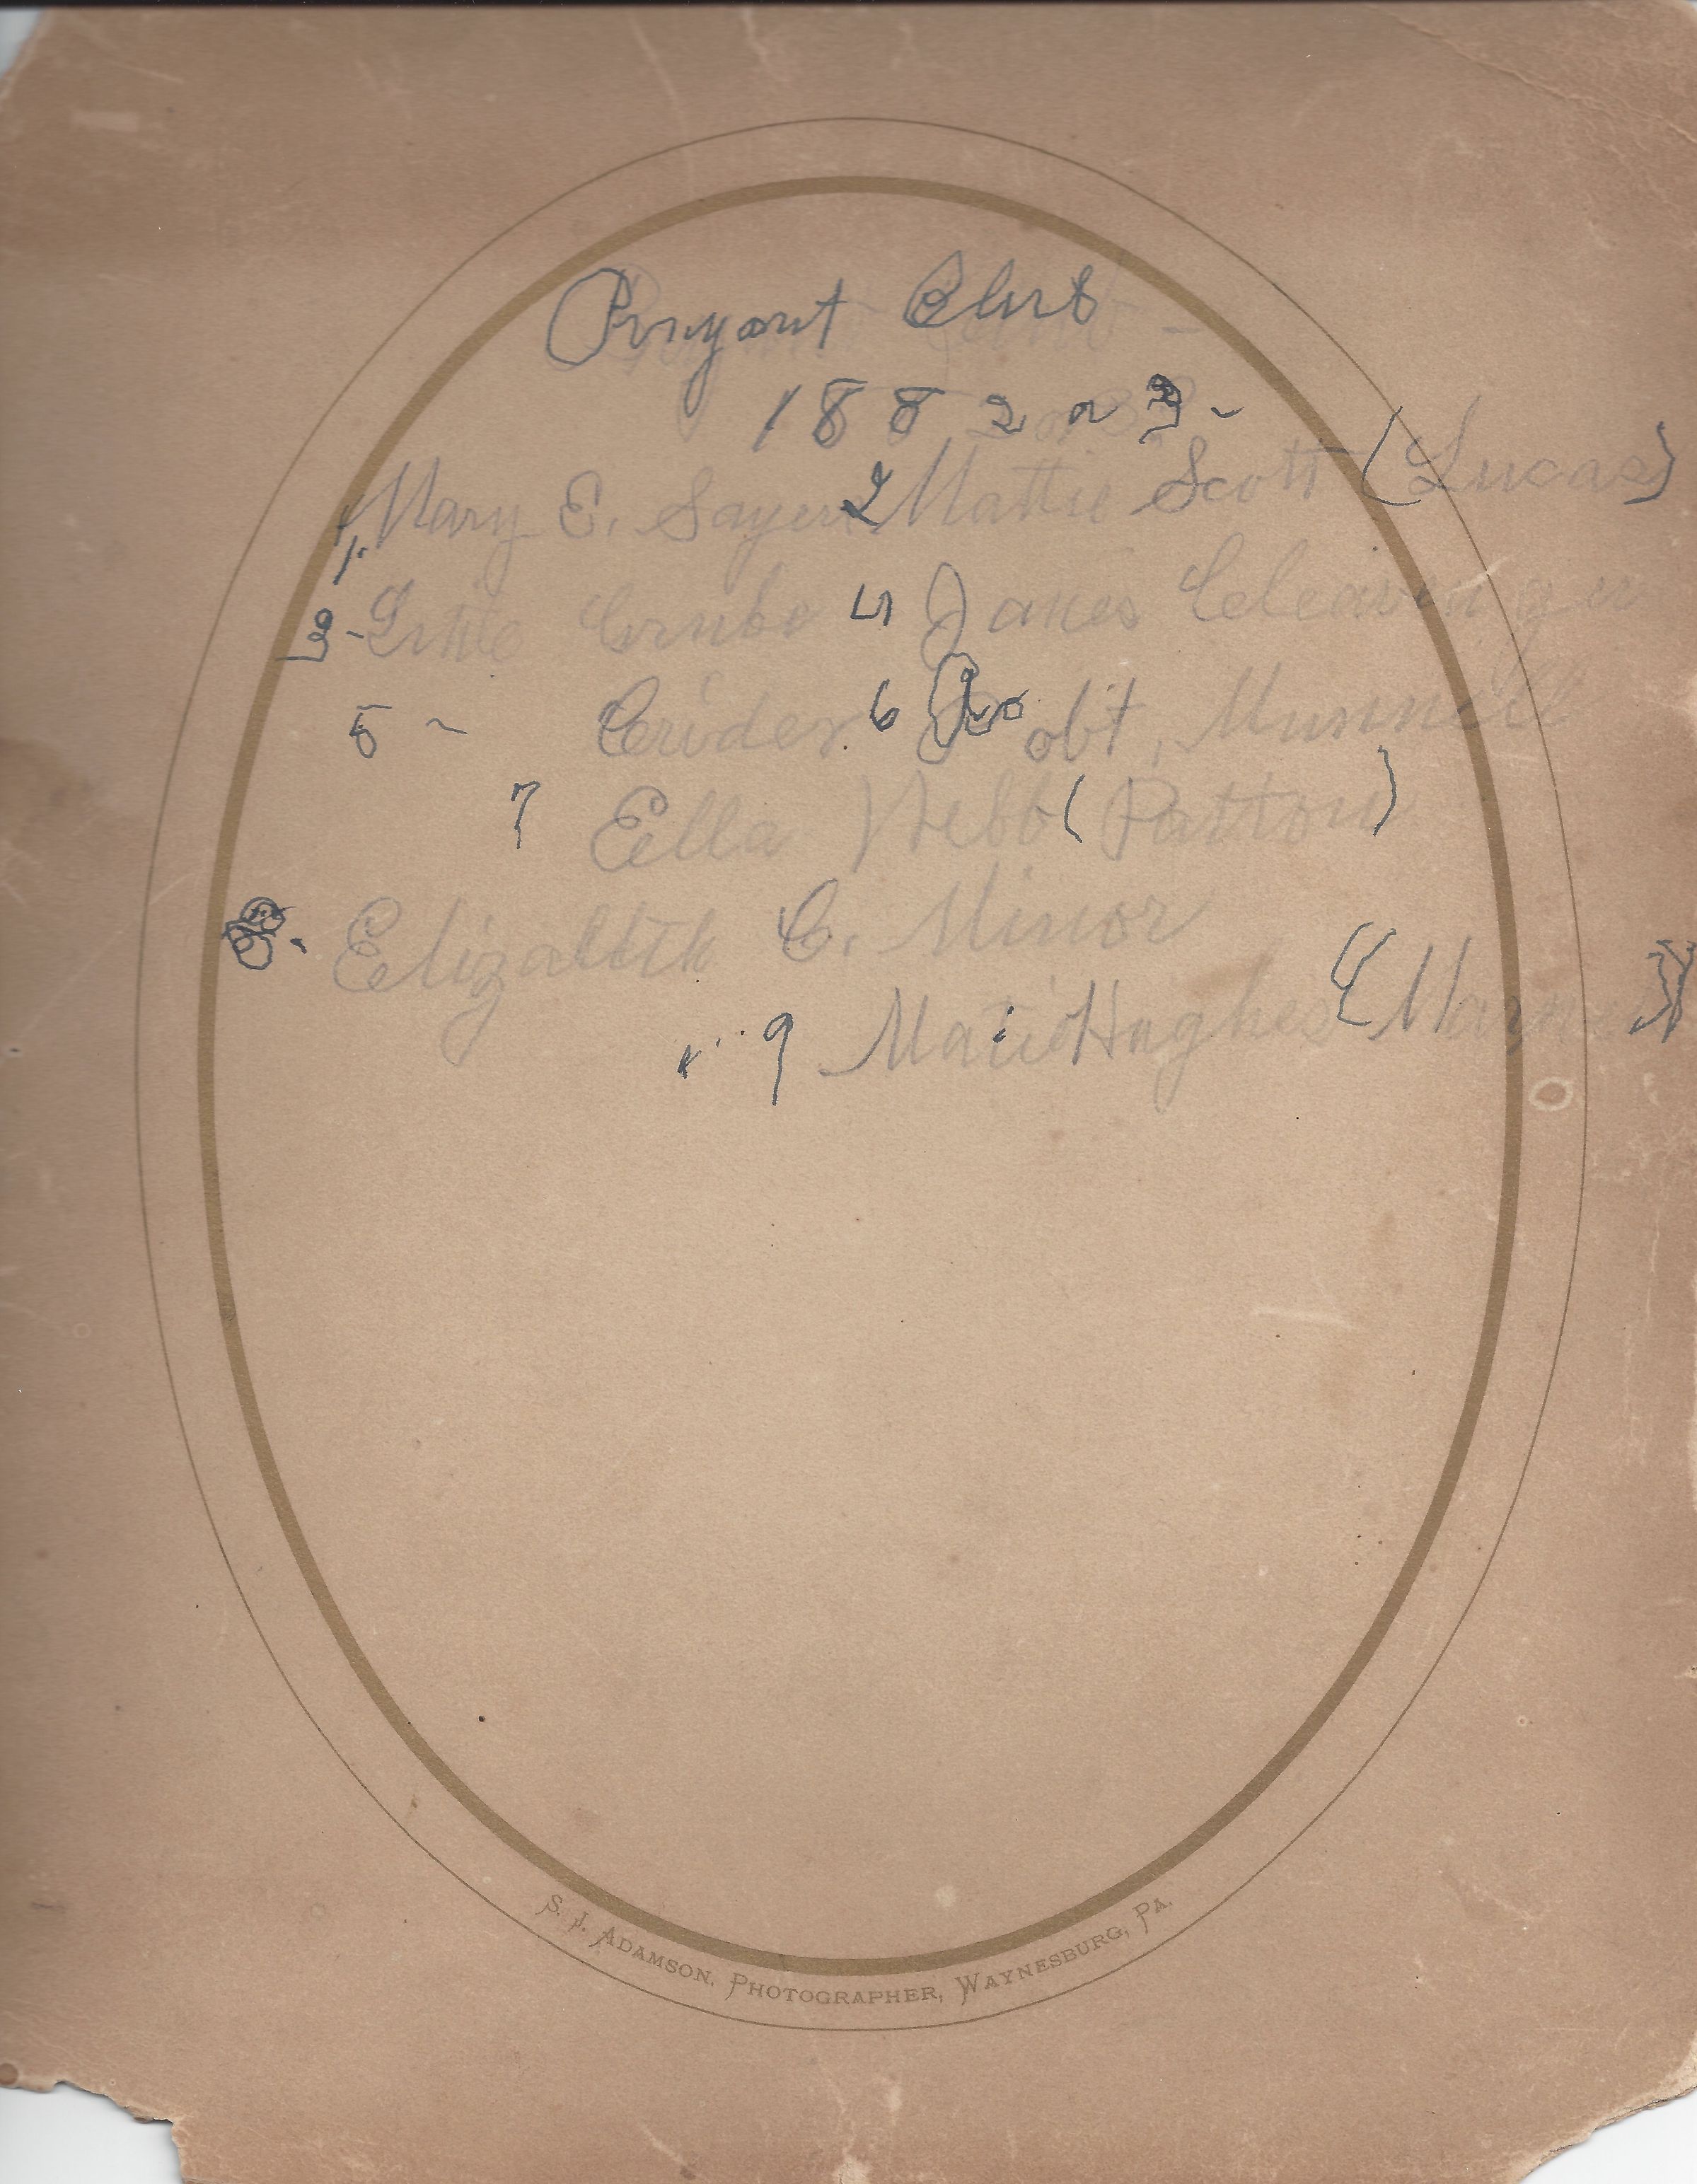 Club
1882 or 3-
1. Mary E. Sayers 2 Mattie Scott (Lucas)
3- 4 James Cleavenger
5- Crider 6 Robt. Munnell
7 Ella Webb (Patton)
8. Elizabeth C. Minor
9 Matie Hughes
S. J. ADAMSON, PHOTOGRAPHER, WAYNESBURG, PA.